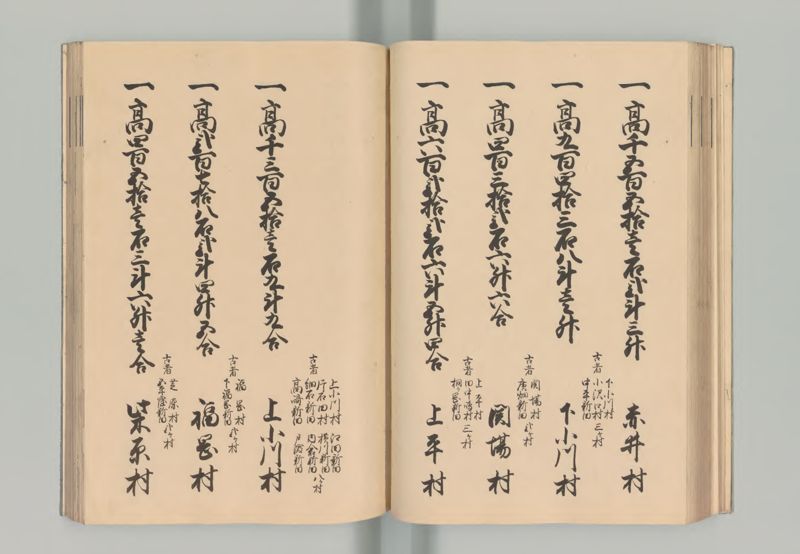 一高千五百五拾壱石弐斗三升
赤井村
一高九百四拾三石八斗壱升
古者
下小川村
小沢口村
中平新田
三ヶ村
下小川村
一高四百三拾弐石六升六合
古者
関場村
広畑新田
弐ヶ村
関場村
一高六百弐拾弐石六斗五升四合
古者
上平村
田中崎村
桐ヶ岡新田
三ヶ村
上平村
一高千三百五拾壱石九斗九合
古者
上小川村
片石田村
細石新田
高崎新田
江田新田
横川新田
内倉新田
戸渡新田
八ヶ村
上小川村
一高弐百七拾八石弐斗四升五合
古者
福岡村
下福岡新田
弐ヶ村
福岡村
一高四百五拾壱石三斗六升壱合
古者
芝原村
弐ヶ村
柴原村